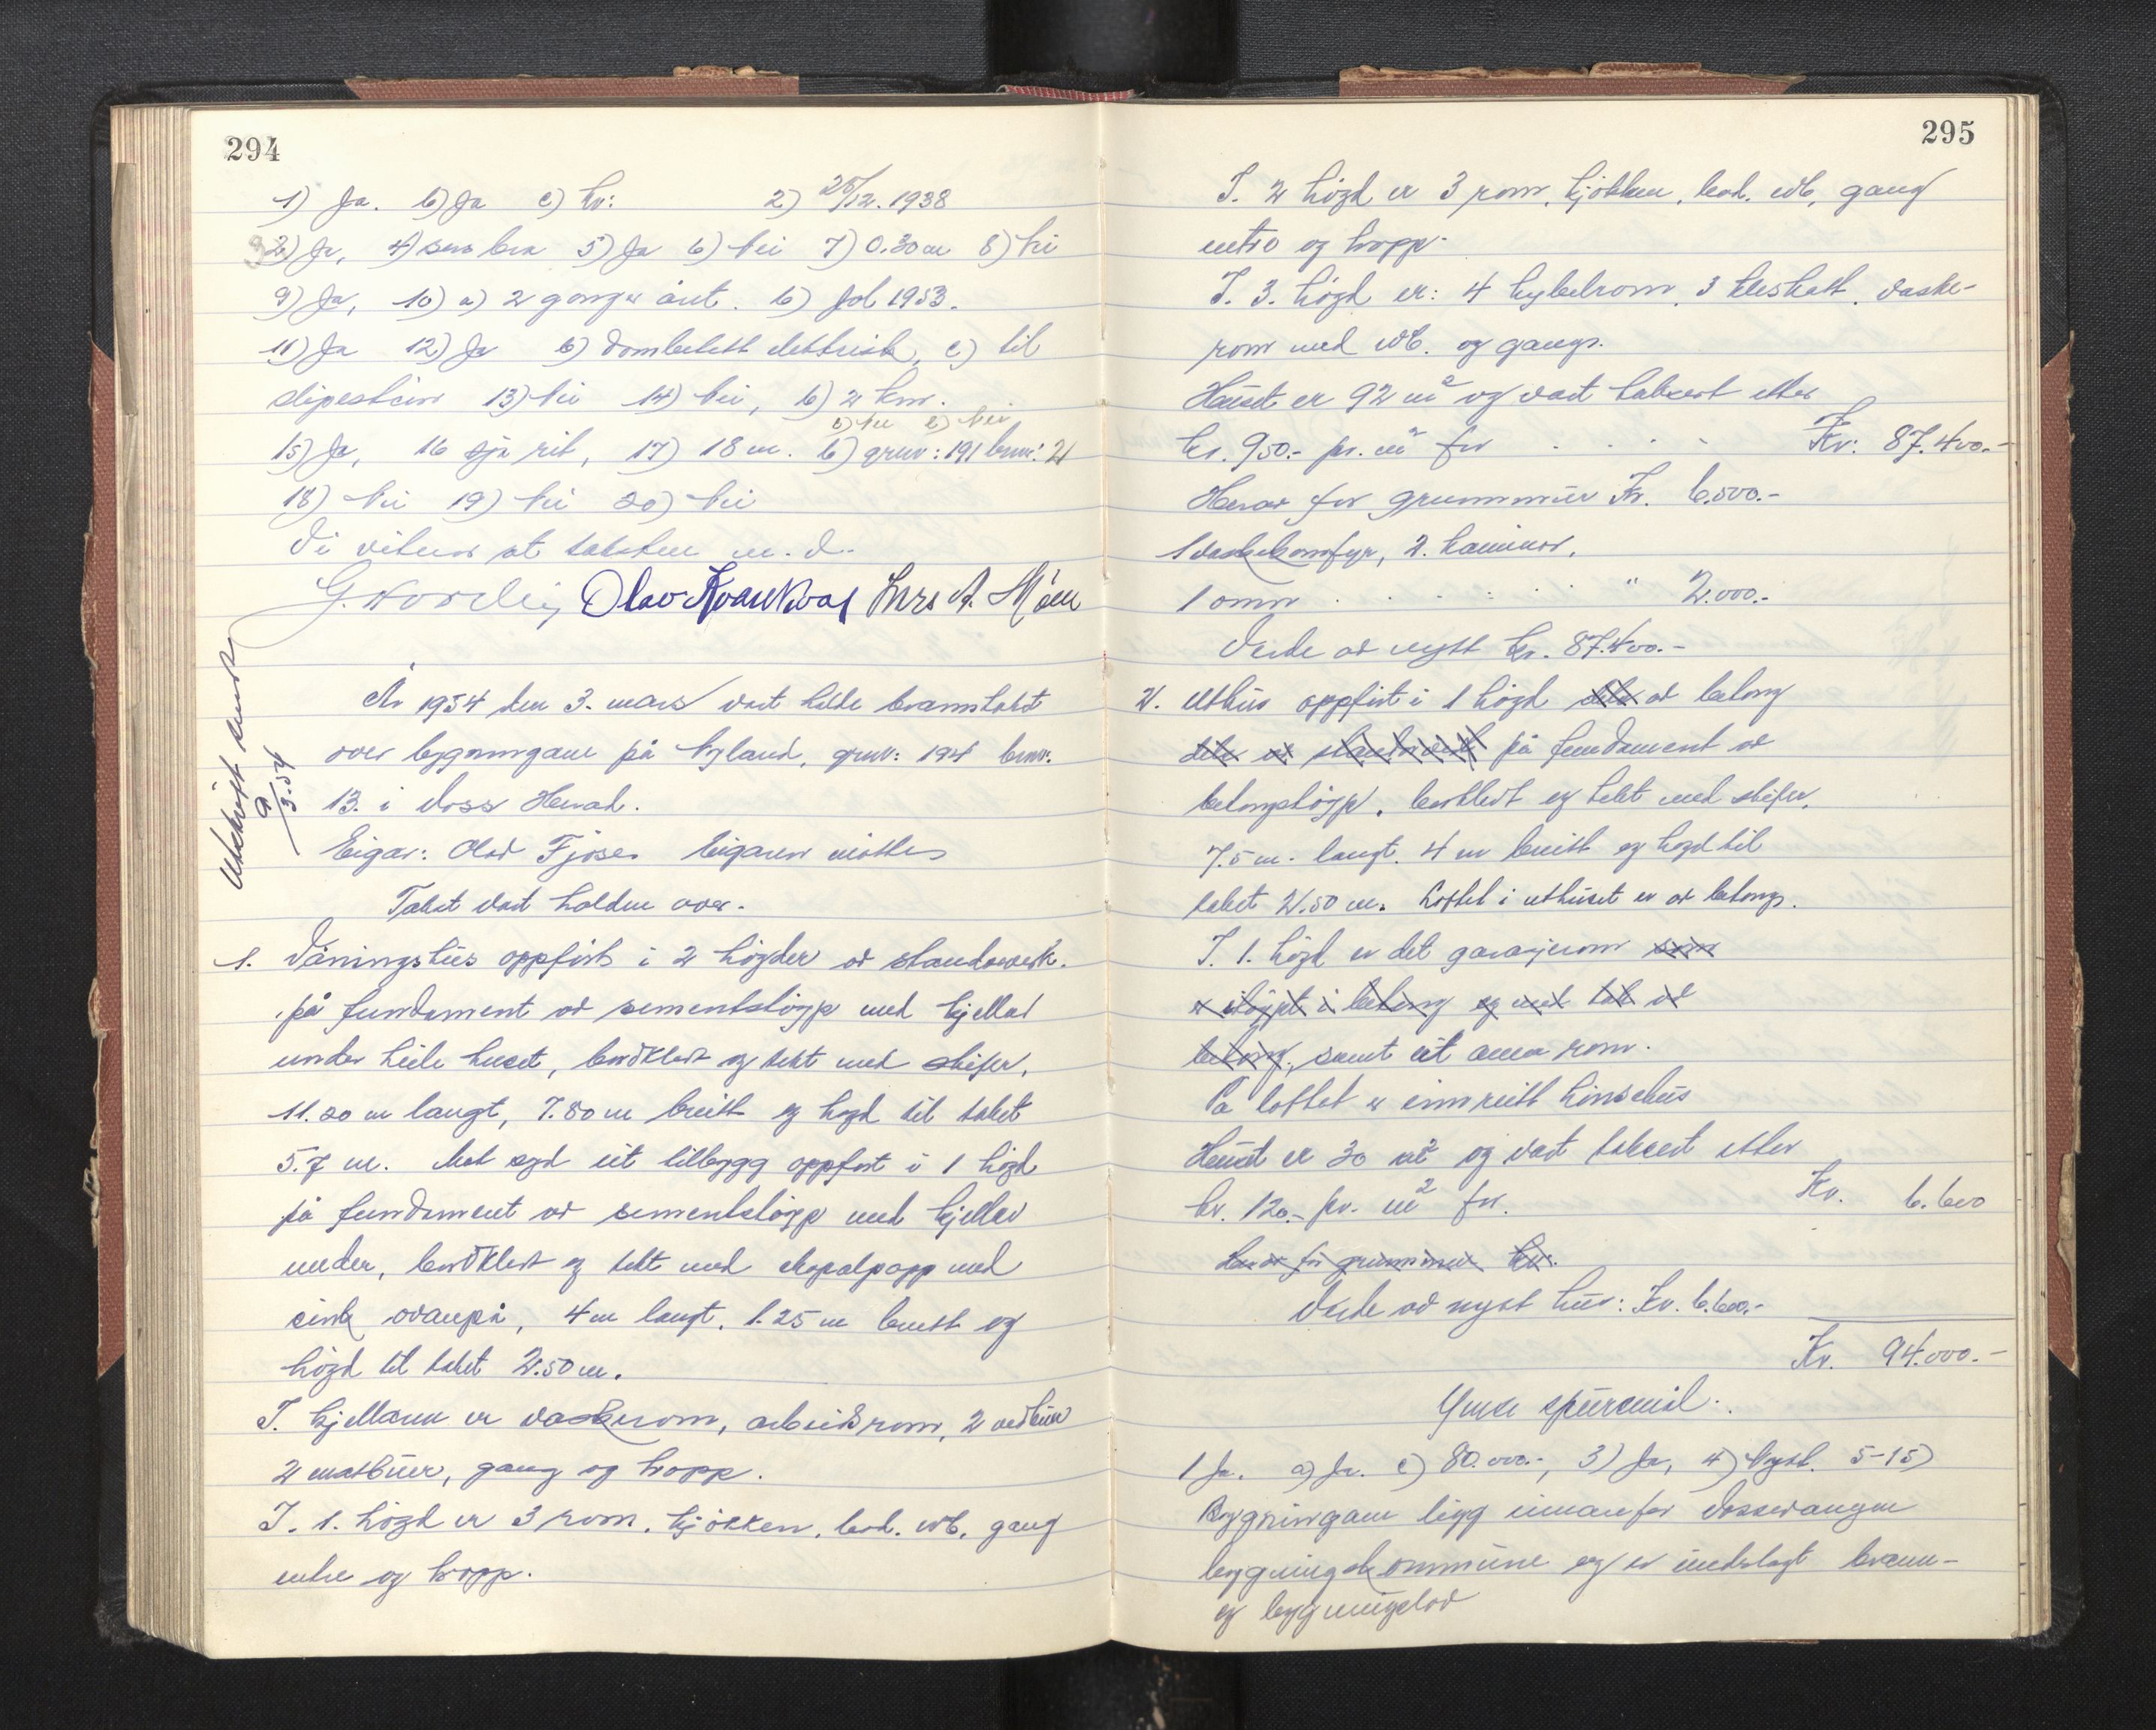 294
1) Ja. b) Ja c) kr: 2) 28/12. 1938
3) Ja, 4) sers bra 5) Ja 6) Nei 7) 0.30 m 8) Nei
9) Ja, 10) a) 2 gonger året. b) Jol 1953.
11) Ja 12) Ja b) vombelett elektrisk, c) til
slipestein 13) Nei 14) Nei, b) 2 km.
b) Nei c) Nei
15) Ja, 16 sjå rit, 17) 18 m. b) gnr: 191 bnr: 21
18) Nei 19) Nei 20) Nei
Vi vitnar at taksten m. v.
Olav Lars A. Møen
Utskrift sendt
9/3.54
År 1954 den 3. mars vart halde branntakst
over bygningane på Nyland, gnr: 194 bnr:
13. i Voss Herad.
Eigar: Olav Fjose. Eigaren møtte
Takst vart halden over.
1. Våningshus oppført i 2 høgder av standarverk.
på fundament av sementstøyp med kjellar
under heile huset, bordkledt og tekt med skifer,
11.20 m langt, 7.80 m breitt og høgd til taket
5.7 m. Mot syd eit tilbygg oppført i 1 høgd
på fundament av sementstøyp med kjellar
under, bordkledt og tekt med papp med
sink ovanpå, 4 m langt, 1.25 m breitt og
høgd til taket 2.50 m.
I. kjellaren er vaskerom, arbeidsrom, 2 vedbuer
2 matbuer, gang og tropp.
I. 1. høgd er 3 rom, kjøkken, bad. wc, gang
entre og tropp.
295
I. 2 høgd er 3 rom, kjøkken, bad. wc, gang
entre og tropp.
I. 3. høgd er: 4 hybelrom, 3 kleskott, vaske-
rom med wc. og gang.
Huset er 92 m² og vart taksert etter
kr. 950.- pr. m² for . . . . Kr: 87.400.-
Herav for grunnmur Kr. 6.500.-
1 vaskekomfyr, 2. kaminer,
1 omn . . . . . " 2.000.-
Verde av nytt kr. 87.400.-
2. Uthus oppført i 1 høgd dels av betong
dels av standarverk på fundament av
betongstøyp, bordkledt og tekt med skifer,
7.5 m. langt. 4 m breitt og høgd til
taket 2.50 m. Loftet i uthuset er av betong.
I. 1. høgd er det garasjerom som
er støypt i betong og med tak av
betong, samt eit anna rom.
På loftet er innreitt hønsehus
Huset er 30 m² og vart taksert etter
kr. 120.- pr. m² for. Kr. 6.600
Herav for grunnmur kr:
Verde av nytt hus: Kr. 6.600.-
Kr. 94.000.-
Ymse spursmål.
1 Ja. a) Ja. c) 80.000.-, 3) Ja, 4) Nytt. 5-15)
Bygningane ligg innanfor Vossevangen
bygningskommune og er underlagt brann-
og bygningslov